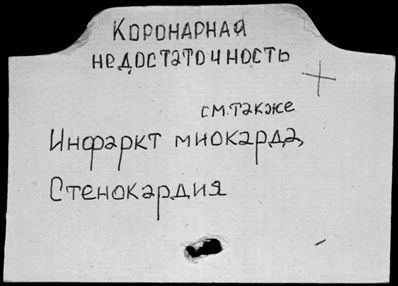 Коронарная
недостаточность
см. также
Инфаркт миокарда,
Стенокардия